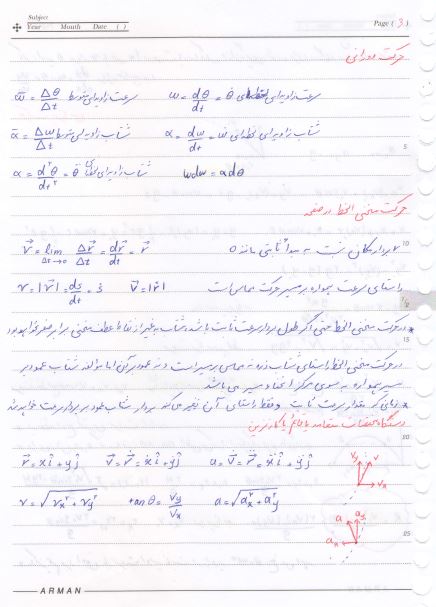 Subject
Year Month Date ( )
Page ( 3 )
حرکت دورانی
ω̄ = Δθ/Δt سرعت زاویه‌ای متوسط ω = dθ/dt = θ̇ سرعت زاویه‌ای لحظه‌ای
ᾱ = Δω/Δt شتاب زاویه‌ای متوسط α = dω/dt = ω̇ شتاب زاویه‌ای لحظه‌ای
5
α = d²θ/dt² = θ̈ شتاب زاویه‌ای ωdω = αdθ
حرکت منحنی الخط در صفحه
10
v⃗ = lim Δt→0 Δr⃗/Δt = dr⃗/dt = ṙ⃗ r بردار مکان نسبت به مبدأ ثابتی مانند o
v = |v⃗| = ds/dt = ṡ v⃗ = |ṙ| راستای سرعت همواره بر مسیر حرکت مماس است
* در حرکت منحنی الخط حتی اگر طول بردار سرعت ثابت باشد، شتاب به غیر از نقاط عطف منحنی برابر صفر نخواهد بود
15
در حرکت منحنی الخط راستای شتاب نه مماس بر مسیر است و نه عمود بر آن اما مؤلفه شتاب عمود بر
مسیر همواره به سوی مرکز انحناء مسیر می باشد
* زمانی که مقدار سرعت ثابت و فقط راستای آن تغییر می‌کند بردار شتاب عمود بر بردار سرعت خواهد شد
دستگاه مختصات متعامد یا قائم یا کارتزین
20
r⃗ = xî + yĵ v⃗ = ṙ⃗ = ẋî + ẏĵ a⃗ = v̇⃗ = r̈⃗ = ẍî + ÿĵ
v_y v v_x
v = √(v_x² + v_y²) tanθ = v_y/v_x a = √(a_x² + a_y²)
a a_x
25
ARMAN